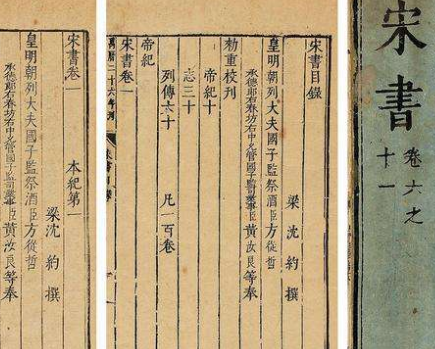 宋書
卷六之
十一
宋書目錄
梁沈約撰
皇明朝列大夫國子監祭酒臣方從哲
承德郎右春坊右中允管國子監司業事臣黃汝良等奉
勅重校刊
帝紀十
志三十
列傳六十 凡一百卷
帝紀
宋書卷一
萬曆二十六年刊
宋書卷一 本紀第一
梁沈約撰
皇明朝列大夫國子監祭酒臣方從哲
承德郎右春坊右中允管國子監司業事臣黃汝良等奉